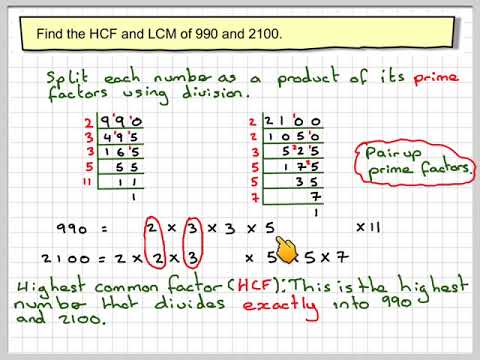 Find the HCF and LCM of 990 and 2100.
Split each number as a product of its prime
factors using division.
2 9 9 ¹0
3 4 ¹9 ¹5
3 1 6 ¹5
5 5 5
11 1 1
1
2 2 1 ¹0 0
2 1 0 5 ¹0
3 5 ²2 ¹5
5 1 7 ²5
5 3 5
7 7
1
Pair up
prime factors.
990 = 2 × 3 × 3 × 5 × 11
2100 = 2 × 2 × 3 × 5 × 5 × 7
Highest common factor (HCF): This is the highest
number that divides exactly into 990
and 2100.